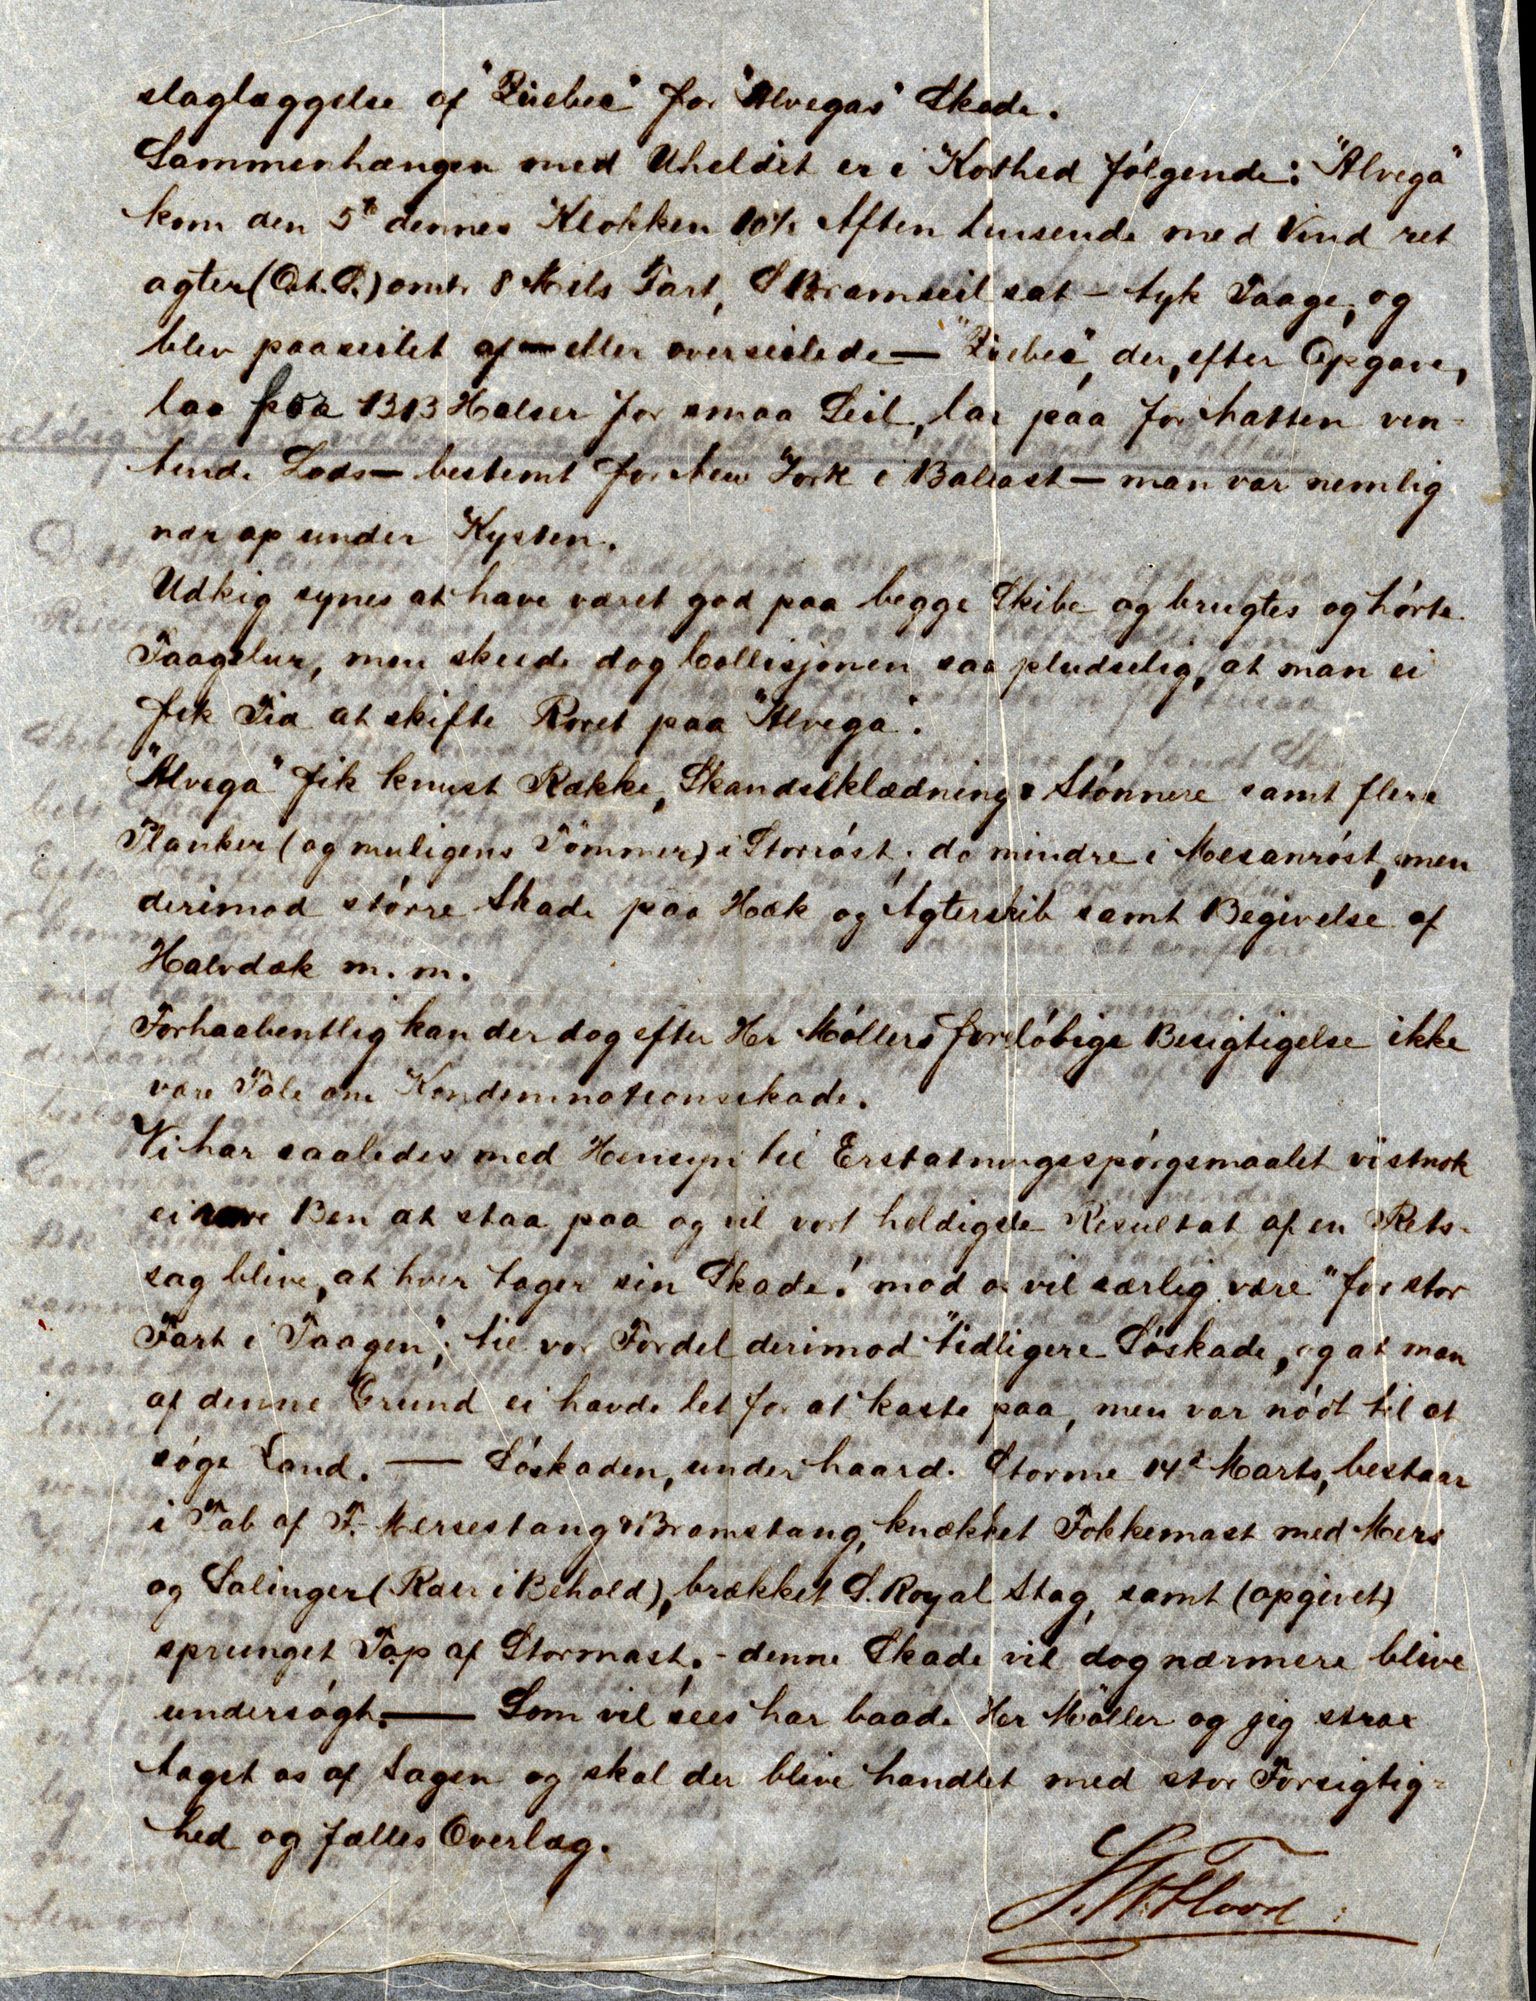 slaglæggelse af "Quebec" for "Alvegas" Skade.
Sammenhængen med Uheldet er i Korthed følgende: "Alvega"
kom den 5te dennes Klokken 10½ Aften lensende med Vind ret
agter (Ost. S.) omtr 8 Mils Fart, S Bramseil sat – tyk Taage, og
blev paaseilet af – eller overseilede – "Quebec", der, efter Opgave,
laa paa BB Halser for smaa Seil, laa paa for Natten ven-
tende Lods – bestemt for New York i Ballast – man var nemlig
nær op under Kysten.
Udkig synes at have været god paa begge Skibe og brugtes og hørte
Taagelur, men skeede dog Collisjonen saa pludselig, at man ei
fik Tid at skifte Roret paa "Alvega".
"Alvega" fik knust Række, Skandseklædning & Stønnere samt flere
Planker (og muligens Tömmer) i Storrøst, do mindre i Mesanrøst, men
derimod større Skade paa Hæk og Agterskib samt Begivelse af
Halvdæk m. m.
Forhaabentlig kan der dog efter Hr Møllers foreløbige Besigtigelse ikke
være Tale om Kondemnationsskade.
Vi har saaledes med Hensyn til Erstatningsspørgsmaalet vistnok
ei Ben at staa paa og vil vort heldigste Resultat af en Rets-
sag blive, at hver tager sin Skade! mod os vil særlig være "for stor
Fart i Taagen"; til vor Fordel derimod "tidligere Søskade, og at man
af denne Grund ei havde let for at kaste paa, men var nødt til at
søge Land. — Søskaden, under haard. Storme 14d Marts, bestaar
i Tab af F. Mersestang & Bramstang, knækket Fokkemast med Mers
og Salinger (Raaer i Behold), brækket S. Royal Stag, samt (opgivet)
sprunget Top af Stormast. – denne Skade vil dog nærmere blive
undersøgt. — Som vil sees har baade Hr Møller og jeg strax
taget os af Sagen og skal der blive handlet med stor Forsigtig-
hed og fælles Overlæg.
Flood